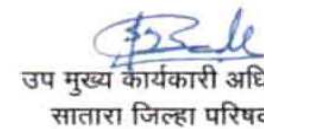 उप मुख्य कार्यकारी अधि
सातारा जिल्हा परिषद